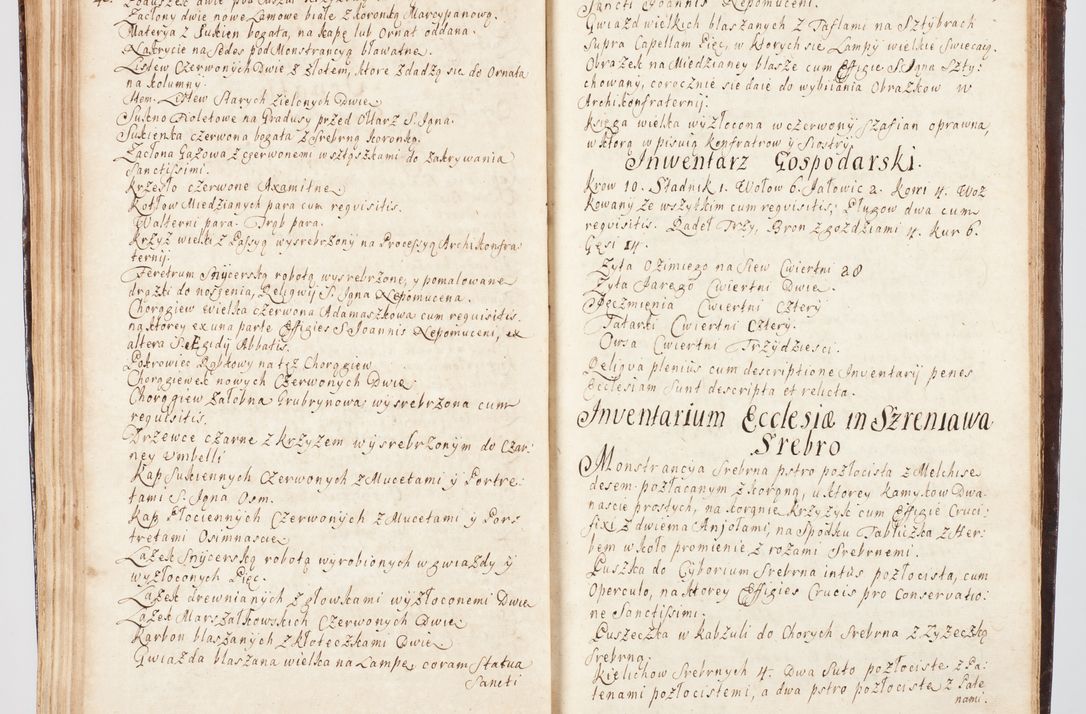 Zasłony dwie nowe Lamowe białe z koronką Marcypanową.
Materya z Sukien bogata, na kapę lub Ornat oddana.
Nakrycie na Sedes pod Monstrancyą bławatne.
Listew Czerwonych Dwie z złotem, ktore zdadzą się do Ornata
na kolumny.
Item Listew Starych Zielonych Dwie
Sukno Fioletowe na Gradusy przed Ołtarz S. Igna.
Sukienka czerwona bogata z Srebrną koronką.
Zasłona Gazowa z czerwonemi wsztąszkami do zakrywania
Sanctissimi.
Krzesło czerwone Axamitne
Kotłow Miedzianych para cum requisitis.
Walterni para. Trąb para.
Krzyż wielki z Passyą wysrebrzony na Processyą Archikonfra-
ternij.
Feretrum Snycerską robotą wysrebrzone, y pomalowane
drążki do noszenia, Reliqwij S. Igna Nepomucena.
Chorągiew wielka czerwona Adamaszkowa cum requisitis.
na ktorey ex una parte Effigies S. Ioannis Nepomuceni, ex
altera S. Egidy Abbatis.
Pokrowiec Rąbkowy na też Chorągiew
Chorągiewek nowych Czerwonych Dwie
Chorągiew załobna Grubrynowa wysrebrzona cum
requisitis.
Drzewce czarne z krzyzem wysrebrzonym do Czar-
ney Umbelli
Kap Sukiennych Czerwonych z Mucetami y Portre-
tami S. Igna Osm.
Kap Płociennych Czerwonych z Mucetami y Por-
tretami Osimnascie
Lasek Snycerską robotą wyrobionych w gwiazdy y
wyzłoconych Pięc.
Lasek drewnianych z głowkami wyzłoconemi Dwie
Lasek Marszałkowskich Czerwonych Dwie
Karbon blaszanych z kłoteczkami Dwie
Gwiazda blaszana wielka na Lampę coram Statua
Sancti
Sancti Ioannis Nepomuceni.
Gwiazd wielkich blaszanych z Taflami na Sztybrach
Supra Capellam Pięc, w ktorych się Lampy wielkie Swiecaią.
Obrazek na Miedzianey blasze cum Effigie S. Igna Szty-
chowany, corocznie się daie do wybitania Obrazkow w
Archikonfraternij.
Księga wielka wyzłocona w czerwony Szafian oprawna,
w ktorą wpisuią Konfratrow y Siostry.
Inwentarz Gospodarski.
Krow 10. Stadnik 1. Wołow 6. Jałowic 2. Koni 4. Woz
Kowany ze wszytkim cum requisitis; Pługow dwa cum
requisitis. Radeł Trzy, Bron z gozdziami 4. Kur 6.
Gęsi 14.
Zyta Ozimiego na Siew Cwiertni 20
Zyta Jarego Cwiertni Dwie
Jęczmienia Cwiertni Cztery
Tatarki Cwiertni Cztery.
Owsa Cwiertni Trzydziesci.
Reliqva plenius cum descriptione Inventarij penes
Ecclesiam Sunt descripta et relicta.
Inventarium Ecclesiæ in Szreniawa
Srebro
Monstrancya Srebrna pstro pozłocista z Melchise-
desem pozłacanym z koroną, u ktorey kamykow Dwa-
nascie prostych, na koronie Krzyżyk cum Effigie Cruci-
fixi z dwiema Anjołami, na Spodku Tabliczka z Her-
bem w koło promienie z rożami Srebrnemi.
Puszka do Cyborium Srebrna intùs pozłocista, cum
Operculo, na ktorey Effigies Crucis pro Conservatio-
ne Sanctissimi.
Puszeczka w kabzuli do Chorych Srebrna z Łyzeczką
Srebrną.
Kielichow Srebrnych 4. Dwa Suto pozłociste z Pa-
tenami pozłocistemi, a dwa pstro pozłociste z Pate-
nami.